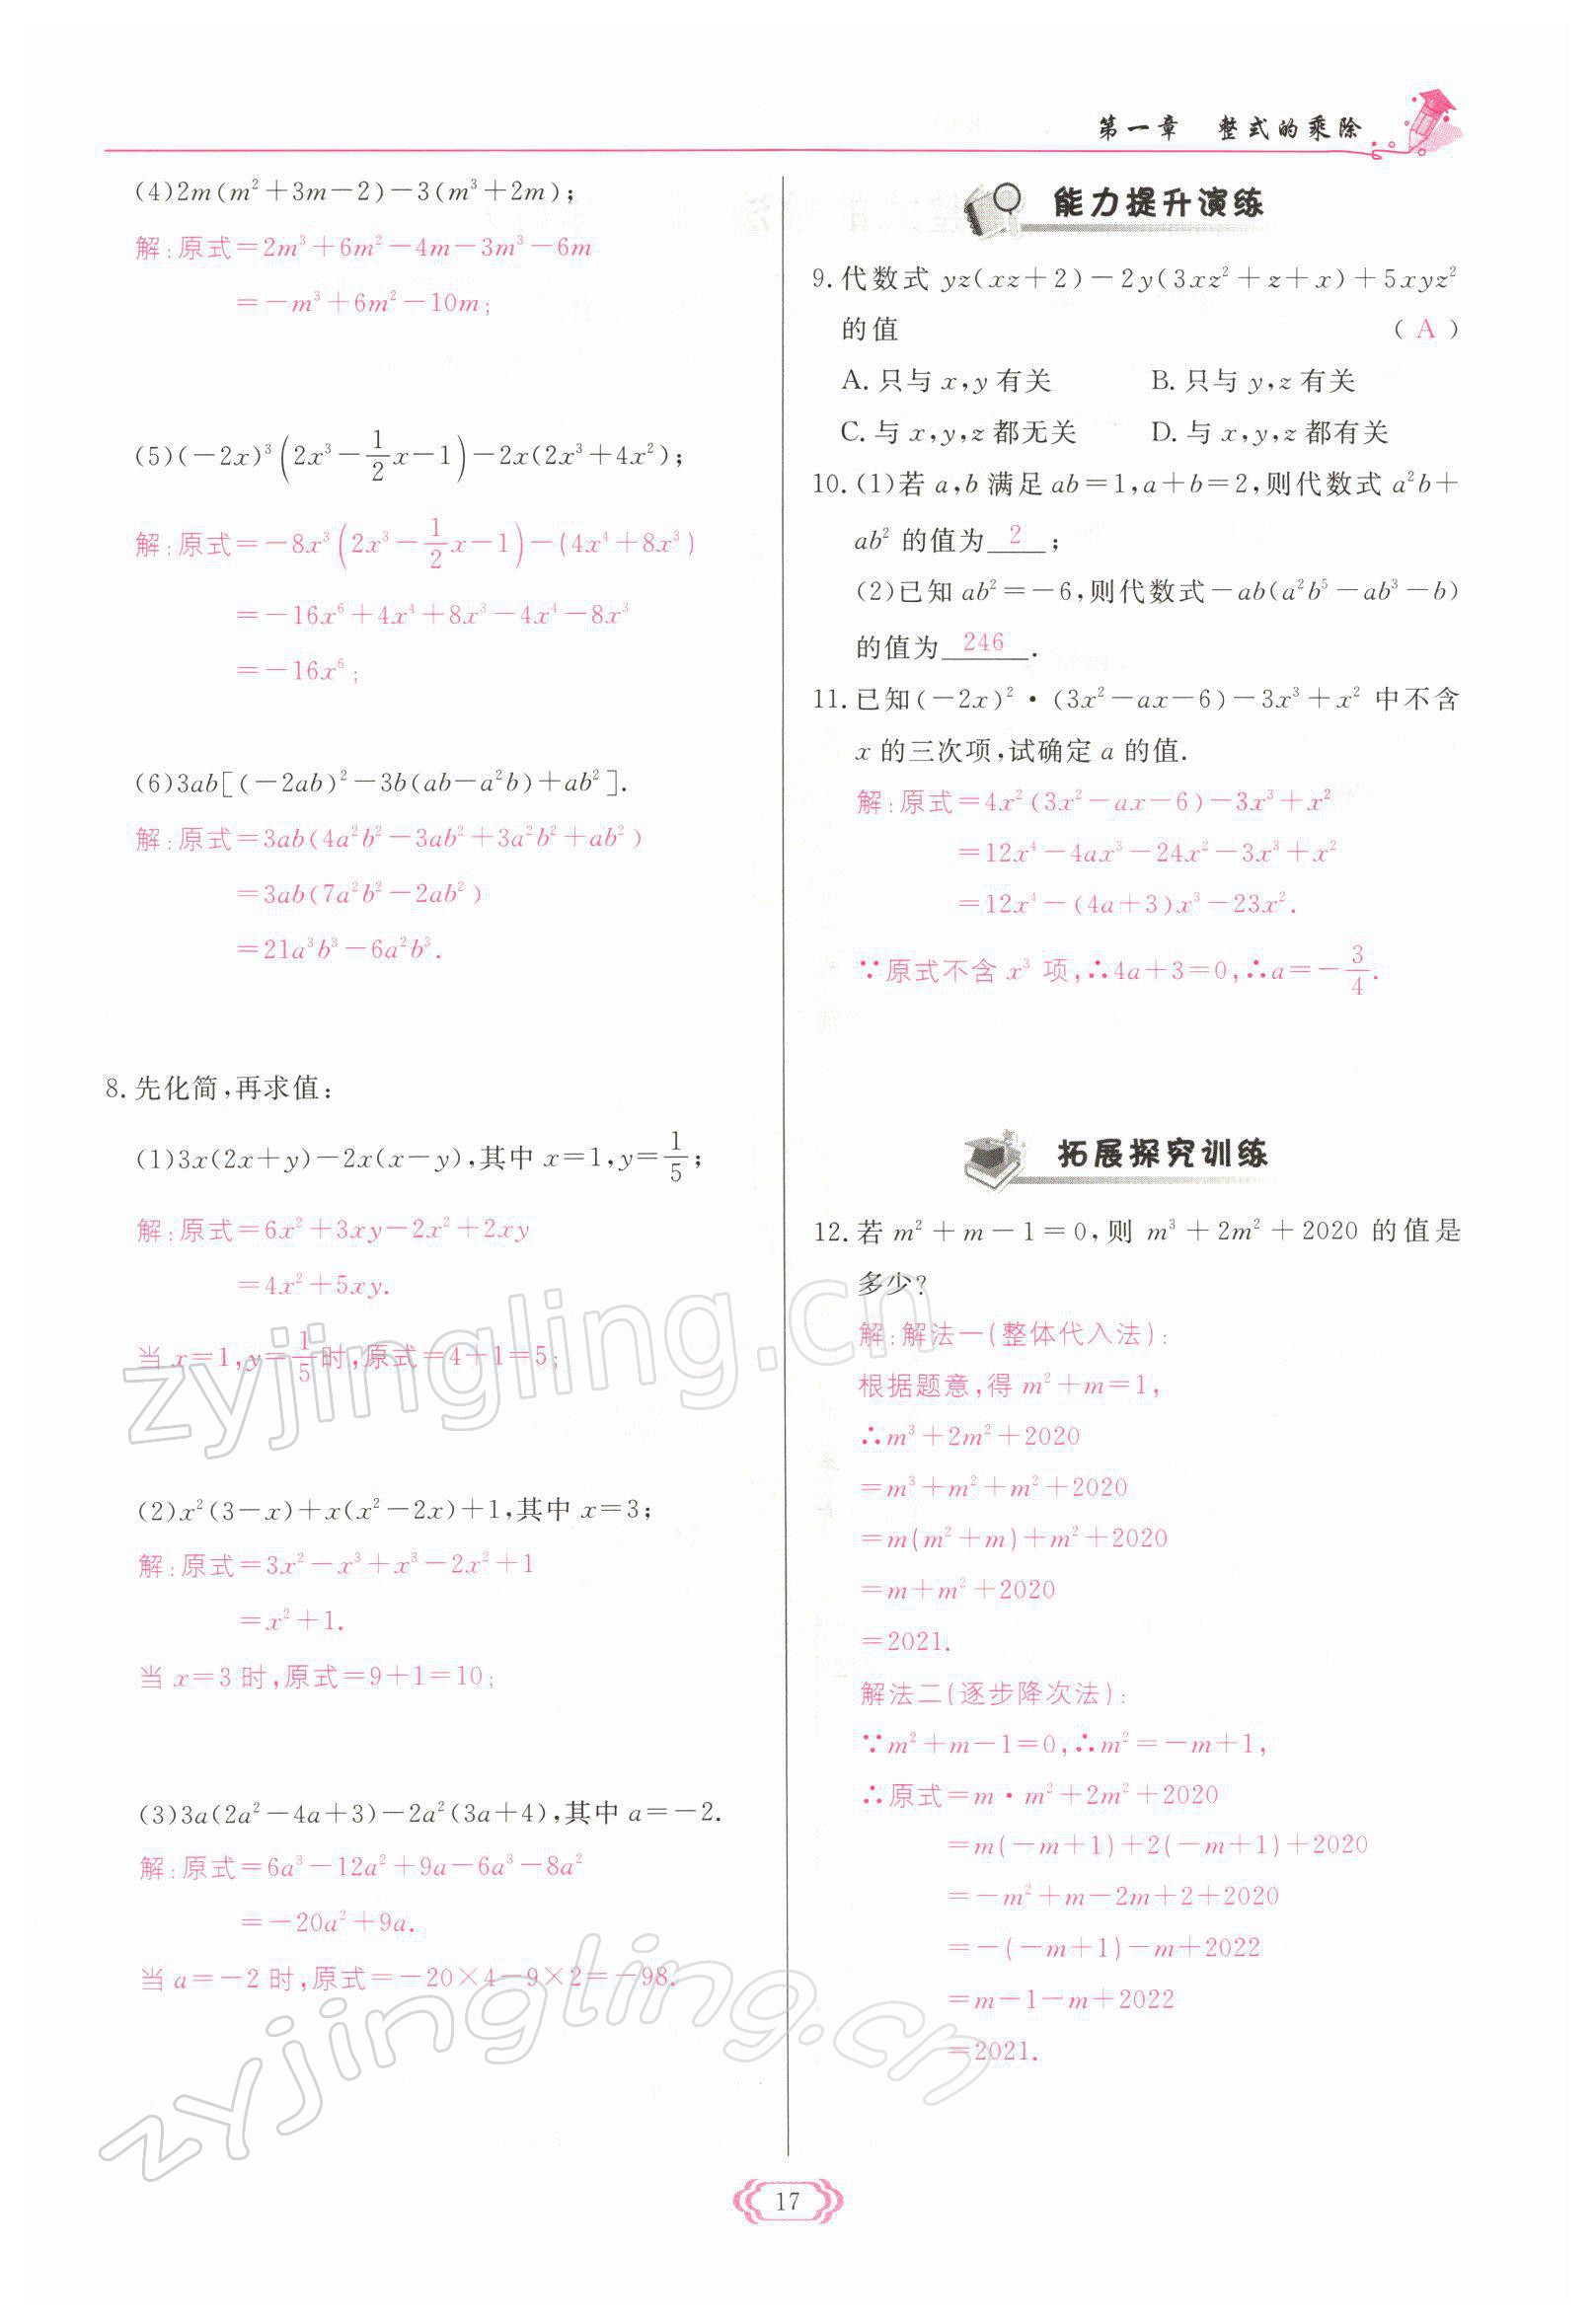 第一章 整式的乘除
(4)2m(m²+3m-2)-3(m³+2m);
解:原式=2m³+6m²-4m-3m³-6m
=-m³+6m²-10m;
(5)(-2x)³(2x³-1/2x-1)-2x(2x³+4x²);
解:原式=-8x³(2x³-1/2x-1)-(4x⁴+8x³)
=-16x⁶+4x⁴+8x³-4x⁴-8x³
=-16x⁶;
(6)3ab[(-2ab)²-3b(ab-a²b)+ab²].
解:原式=3ab(4a²b²-3ab²+3a²b²+ab²)
=3ab(7a²b²-2ab²)
=21a³b³-6a²b³.
8.先化简,再求值:
(1)3x(2x+y)-2x(x-y),其中x=1,y=1/5;
解:原式=6x²+3xy-2x²+2xy
=4x²+5xy.
当x=1,y=1/5时,原式=4+1=5;
(2)x²(3-x)+x(x²-2x)+1,其中x=3;
解:原式=3x²-x³+x³-2x²+1
=x²+1.
当x=3时,原式=9+1=10;
(3)3a(2a²-4a+3)-2a²(3a+4),其中a=-2.
解:原式=6a³-12a²+9a-6a³-8a²
=-20a²+9a.
当a=-2时,原式=-20×4-9×2=-98.
能力提升演练
9.代数式yz(xz+2)-2y(3xz²+z+x)+5xyz²
的值 (A)
A.只与x,y有关 B.只与y,z有关
C.与x,y,z都无关 D.与x,y,z都有关
10.(1)若a,b满足ab=1,a+b=2,则代数式a²b+
ab²的值为 2 ;
(2)已知ab²=-6,则代数式-ab(a²b⁵-ab³-b)
的值为 246 .
11.已知(-2x)²·(3x²-ax-6)-3x³+x²中不含
x的三次项,试确定a的值.
解:原式=4x²(3x²-ax-6)-3x³+x²
=12x⁴-4ax³-24x²-3x³+x²
=12x⁴-(4a+3)x³-23x².
∵原式不含x³项,∴4a+3=0,∴a=-3/4.
拓展探究训练
12.若m²+m-1=0,则m³+2m²+2020的值是
多少?
解:解法一(整体代入法):
根据题意,得m²+m=1,
∴m³+2m²+2020
=m³+m²+m²+2020
=m(m²+m)+m²+2020
=m+m²+2020
=2021.
解法二(逐步降次法):
∵m²+m-1=0,∴m²=-m+1,
∴原式=m·m²+2m²+2020
=m(-m+1)+2(-m+1)+2020
=-m²+m-2m+2+2020
=-(-m+1)-m+2022
=m-1-m+2022
=2021.
17
zyjingling.cn
zyjingling.cn